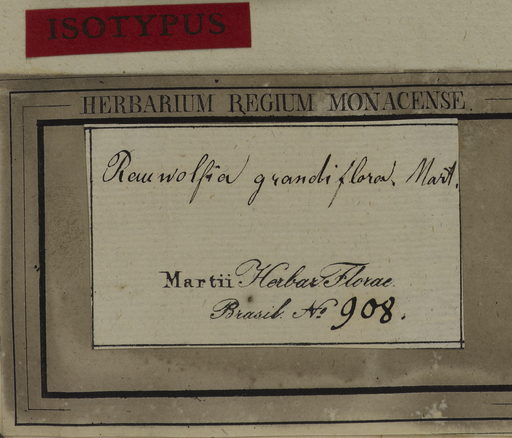 ISOTYPUS
HERBARIUM REGIUM MONACENSE.
Rauwolfia grandiflora. Mart.
Martii Herbar. Florae
Brasil. No 908.